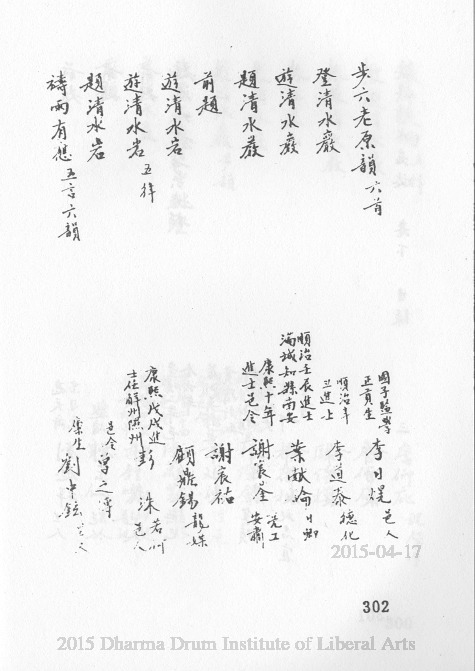 步六老原韻 六首
登清水巖
遊清水巖
題清水巖
前題
遊清水岩
遊清水岩 五律
題清水岩
禱雨有感 五言六韻
國子監學正貢生 李日焜 邑人
順治辛丑進士 李道泰 德化
順治壬辰進士滿城知縣南安 葉獻論 日卿
康熙十年進士邑令 謝宸荃 安肅
謝宸祐
顧鼎錫 龍媒
康熙戊戌進士任解州隰州 彭洙 邑人
邑令 曾之傳
廩生 劉中鋐 邑人
2015-04-17
302
2015 Dharma Drum Institute of Liberal Arts